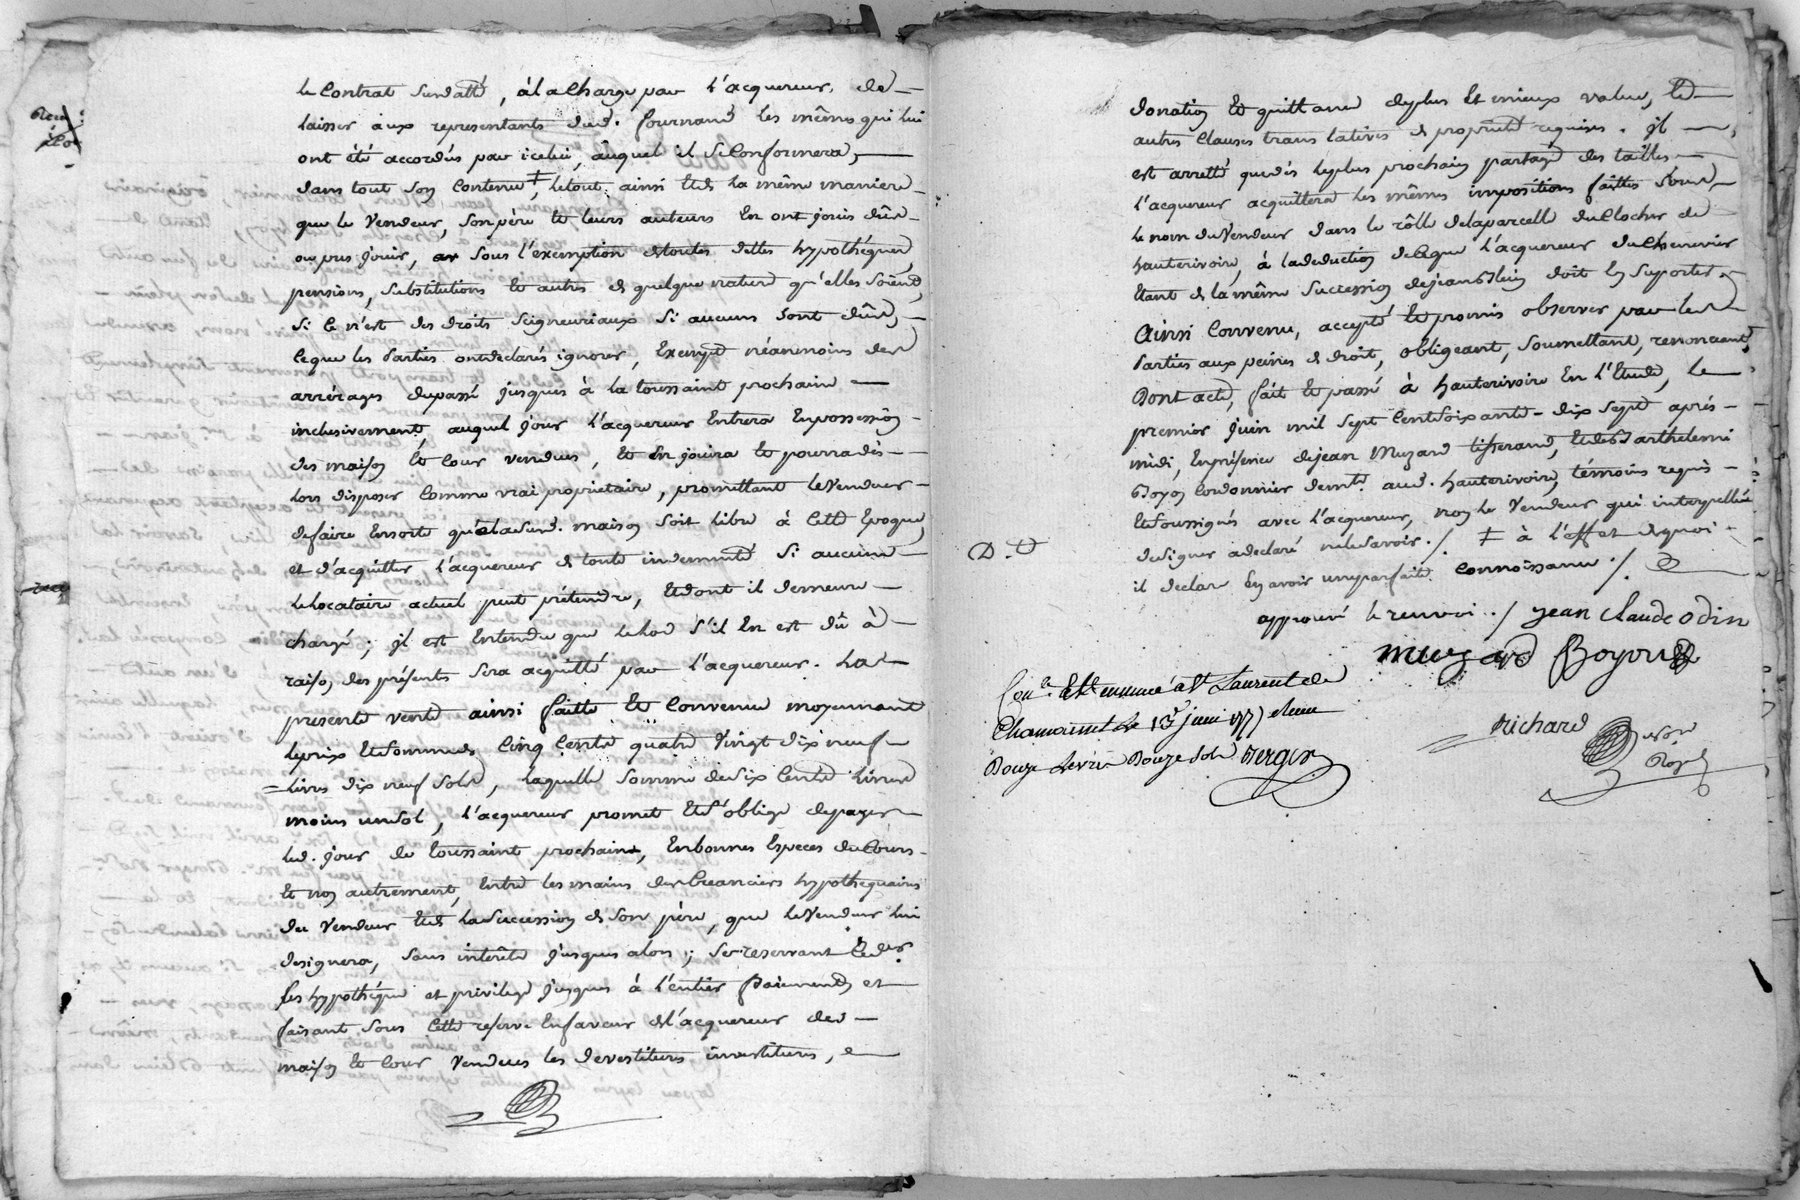 le Contrat susdatté, à la Charge par l'acquereur, de
laisser aux representants dud. fournand les mêmes qui lui
ont été accordés par icelui, auquel il se Conformera,
dans tout son Contenu, ‡ le tout ainsi et de la même maniere
que le Vendeur, son père et leurs auteurs en ont joui dûs
ou pus jouir, sous l'exemption de toutes dettes hypothéques,
pensions, substitutions et autres de quelque nature qu'elles soient,
Si ce n'est des droits seigneuriaux si aucuns sont dûs,
Ceque les Parties ont declarés ignorer, Exempte néanmoins des
arrérages du passé jusques à la toussaint prochaine
inclusivement, auquel jour l'acquereur Entrera En possession
des maison et Cour vendues, et En jouira et pourra dès
lors disposer Comme vrai proprietaire, promettant le Vendeur
de faire Ensorte que lad. maison soit libre à Cette Epoque,
et d'acquitter l'acquereur de toute indemnité si aucune
le locataire actuel peut prétendre, et dont il demeure
chargé; il est Entendu que le lod s'il En est dû à
raison des présents sera acquitté par l'acquereur. La
presente vente ainsi faitte et Convenue moyennant
le prix et somme de Cinq Cents quatre Vingt dix neuf
livres dix neuf sols, laquelle somme de six Cents livres
moins un sol, l'acquereur promet et s'oblige de payer
led. jour de toussaint prochain, En bonnes Especes du Cours
et non autrement, Entre les mains des Creanciers hypothequaires
du Vendeur et de la succession de son père, que le Vendeur lui
designera, sans interêts jusques alors; se reservant
ses hypothéque et privilege jusques à l'entier Paiement, et
faisant sous Cette reserve En faveur de l'acquereur des
maison et Cour Vendues les devestitures investitures,
donation et quittance de plus et mieux value, et
autres Clauses translatives de propriété requises. il
est arretté que dès le plus prochain partage des tailles
l'acquereur acquittera les mêmes impositions faittes sous
le nom du Vendeur dans le rôlle de la parcelle du Clocher de
hauterivoire, à la deduction de Ce que l'acquereur du Chenevrier
Etant de la même succession de jean doit En suporter
Ainsi Convenu, accepté et promis observer par les
Parties aux peines de droit, obligeant, soumettant, renonceant,
Dont acte, fait et passé à hauterivoire En l'Etude, le
premier juin mil sept Cent soixante-dix sept après
midi, En présence de jean Muzard tisserand, et de Barthelemi
Boyon Cordonnier demt. aud. hauterivoire, témoins requis
et soussignés avec l'acquereur, non le Vendeur qui interpellé
de signer a declaré ne le savoir ./. ‡ à l'effet de quoi
D.D
il declare En avoir une parfaite Connoissance ./.
approuvé le renvoi ./. jean Claude odin
muzard Boyon
Con.le Est ennuncé à St Laurent de
Chamousset Le 1er juin 1777
Douze Livres Douze sols Berger
Richard